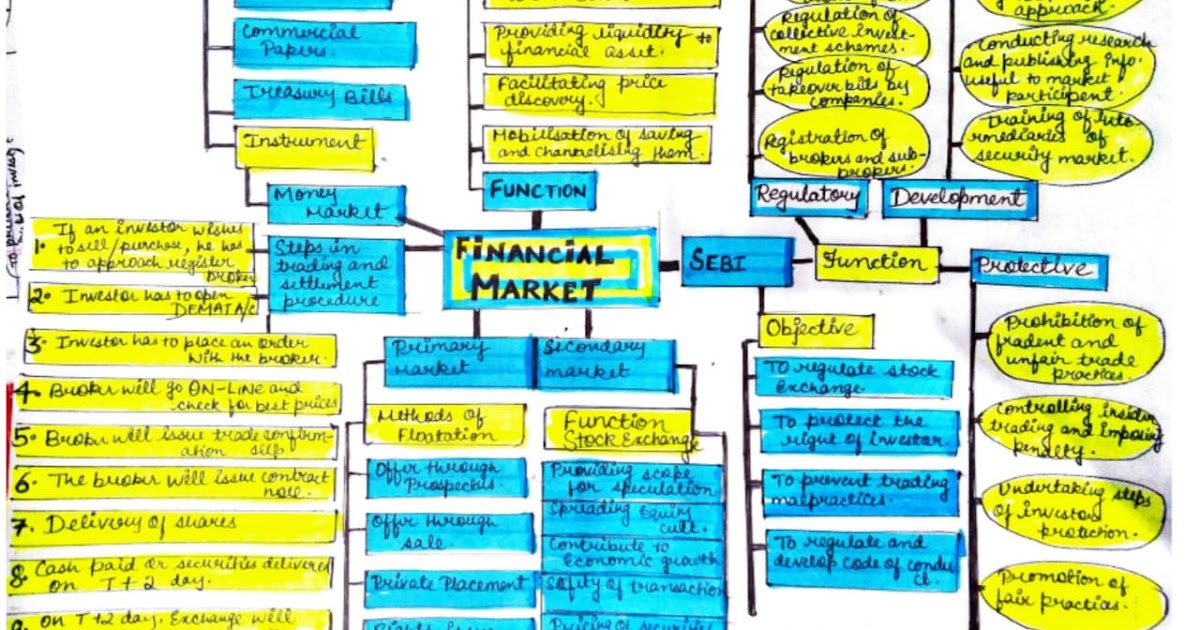 Commercial
Papers.
Treasury Bills
Instrument
Money
Market
Providing liquidity to
financial asset.
Facilitating price
discovery.
Mobilisation of saving
and channelising them.
FUNCTION
Regulation of
collective invest-
ment schemes.
Regulation of
takeover bids by
companies.
Registration of
brokers and sub-
brokers.
Regulatory
approach.
Conducting research
and publishing info.
useful to market
participent.
Training of inte-
rmediaries of
security market.
Development
FINANCIAL
MARKET
SEBI
Function
Protective
Steps in
trading and
settlement
procedure
1. If an investor wishes
to sell/purchase, he has
to approach register
broker
2. Investor has to open
DEMAT A/c
3. Investor has to place an order
with the broker.
4. Broker will go ON-LINE and
check for best prices
5. Broker will issue trade confirm-
ation slip
6. The broker will issue contract
note.
7. Delivery of shares
8. Cash paid or securities delivered
on T+2 day.
9. On T+2 day, Exchange will
Primary
Market
Methods of
Floatation
Offer through
Prospectus
Offer through
sale.
Private Placement
Secondary
market
Function
Stock Exchange
Providing scope
for speculation
Spreading Equity
cult.
Contribute to
Economic growth
Safity of transaction
Pricing of securities
Objective
TO regulate stock
Exchange.
To protect the
right of investor.
To prevent trading
malpractices.
To regulate and
develop code of condu
ct.
Prohibition of
fradent and
unfair trade
practices.
Controlling insider
trading and imposing
penelty.
Undertaking steps
of investor
protection.
Promotion of
fair practias.